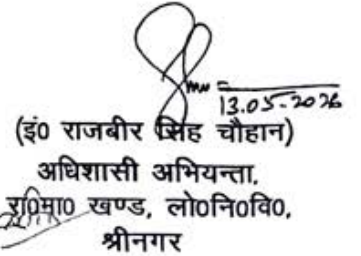 13.05.2026
(इं० राजबीर सिंह चौहान)
अधिशासी अभियन्ता,
रा०मा० खण्ड, लो०नि०वि०,
श्रीनगर